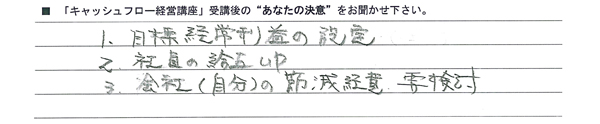 ■ 「キャッシュフロー経営講座」受講後の“あなたの決意”をお聞かせ下さい。
1. 目標経常利益の設定
2. 社員の給与UP
3. 会社(自分)の節減経費 要検討